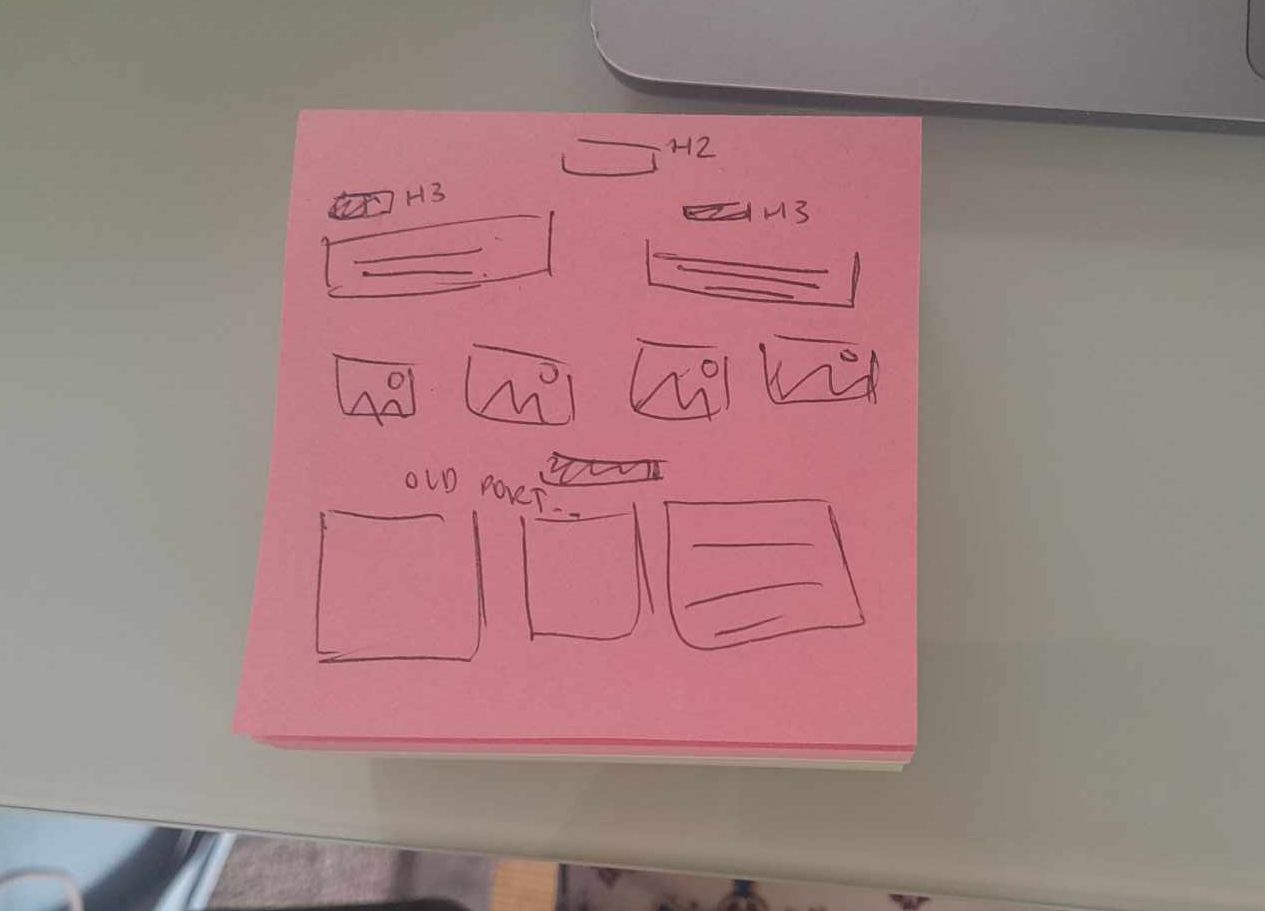 H2
H3
H3
OLD PORT...